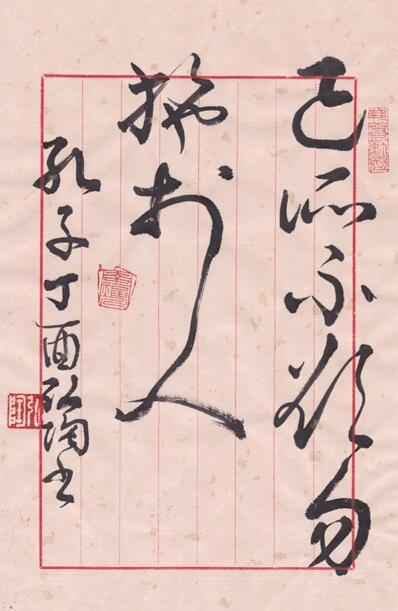 己所不欲勿
施於人
孔子丁酉弘陶书